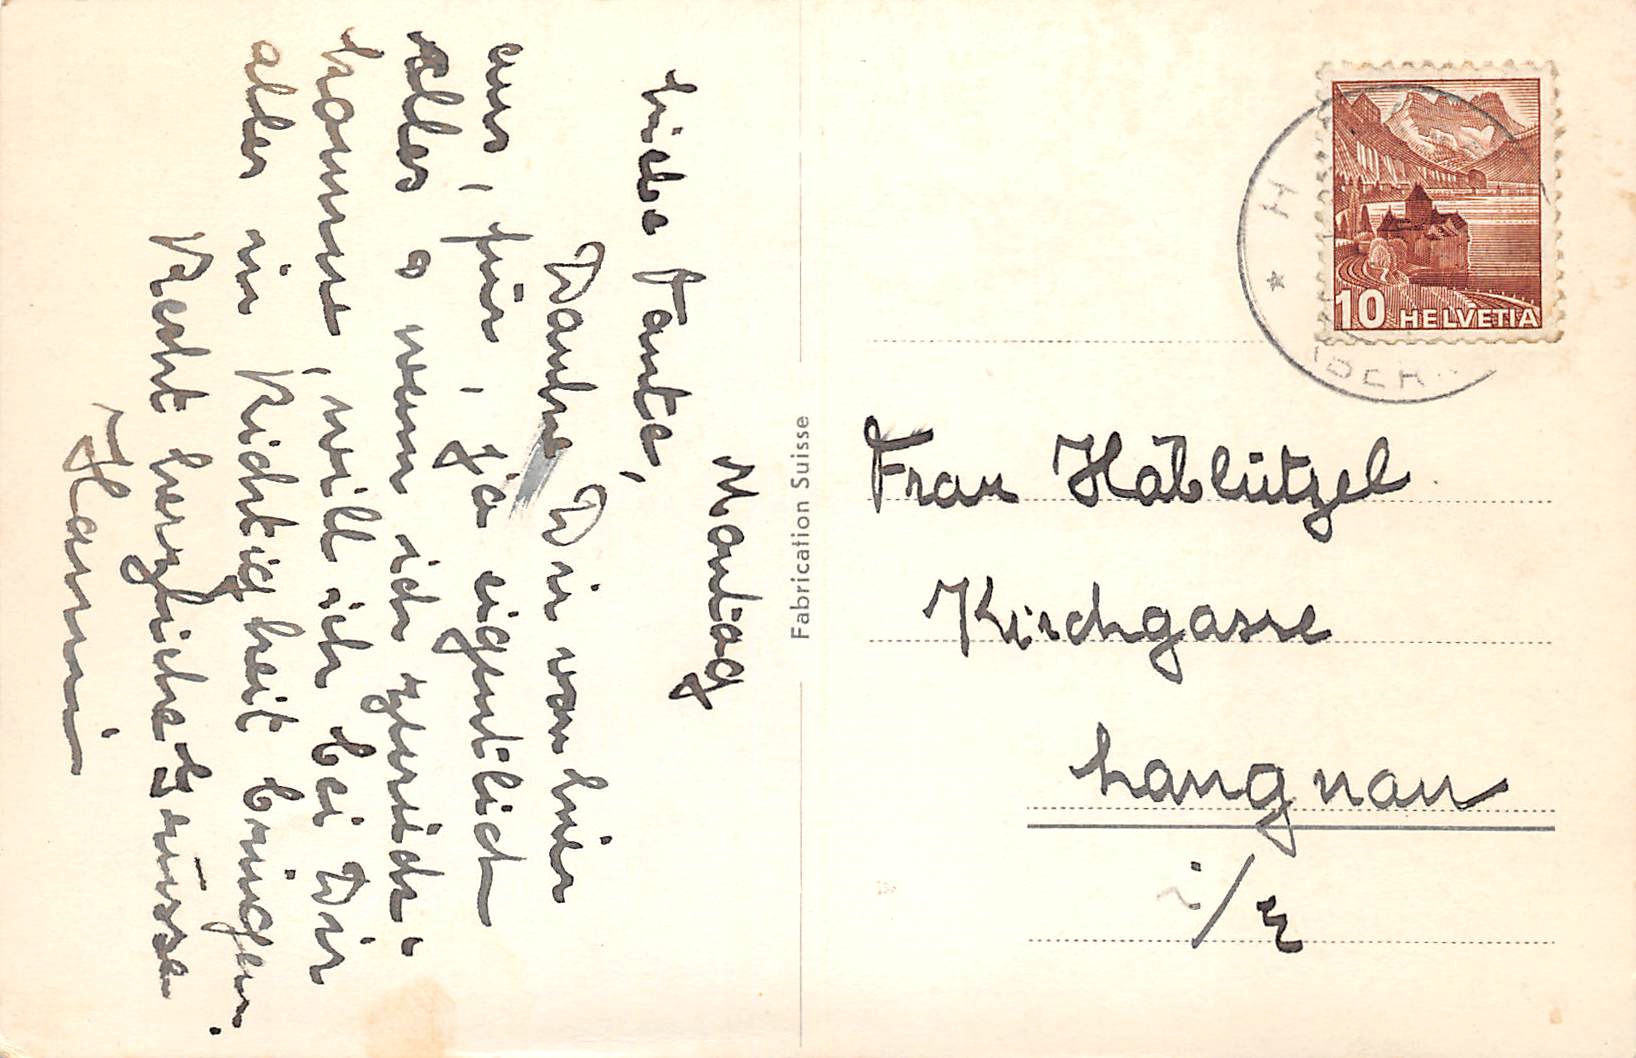 Montag
Liebe Tante,
Danke Dir von hier
aus, für, ja eigentlich
alles, wenn ich zurück-
komme, will ich bei Dir
alles in Richtigkeit bringen.
Recht herzliche Grüsse
Hanni
Fabrication Suisse
10 HELVETIA
Frau Häblützel
Kirchgasse
Langnau
i/E